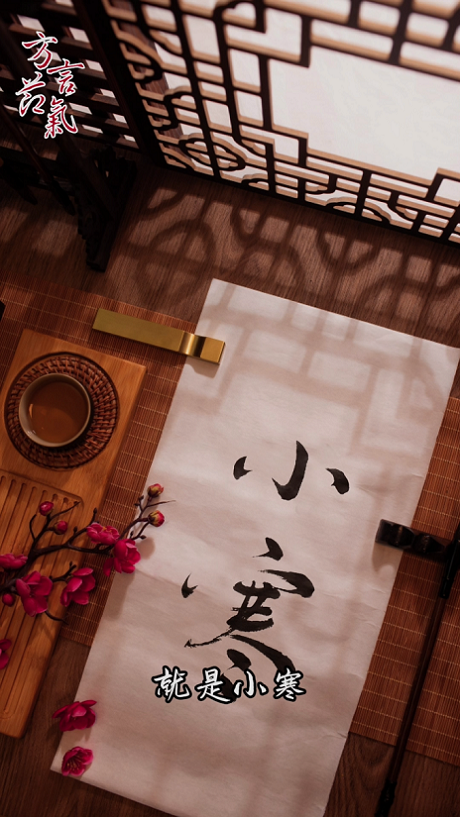 方言节氣
小寒
就是小寒